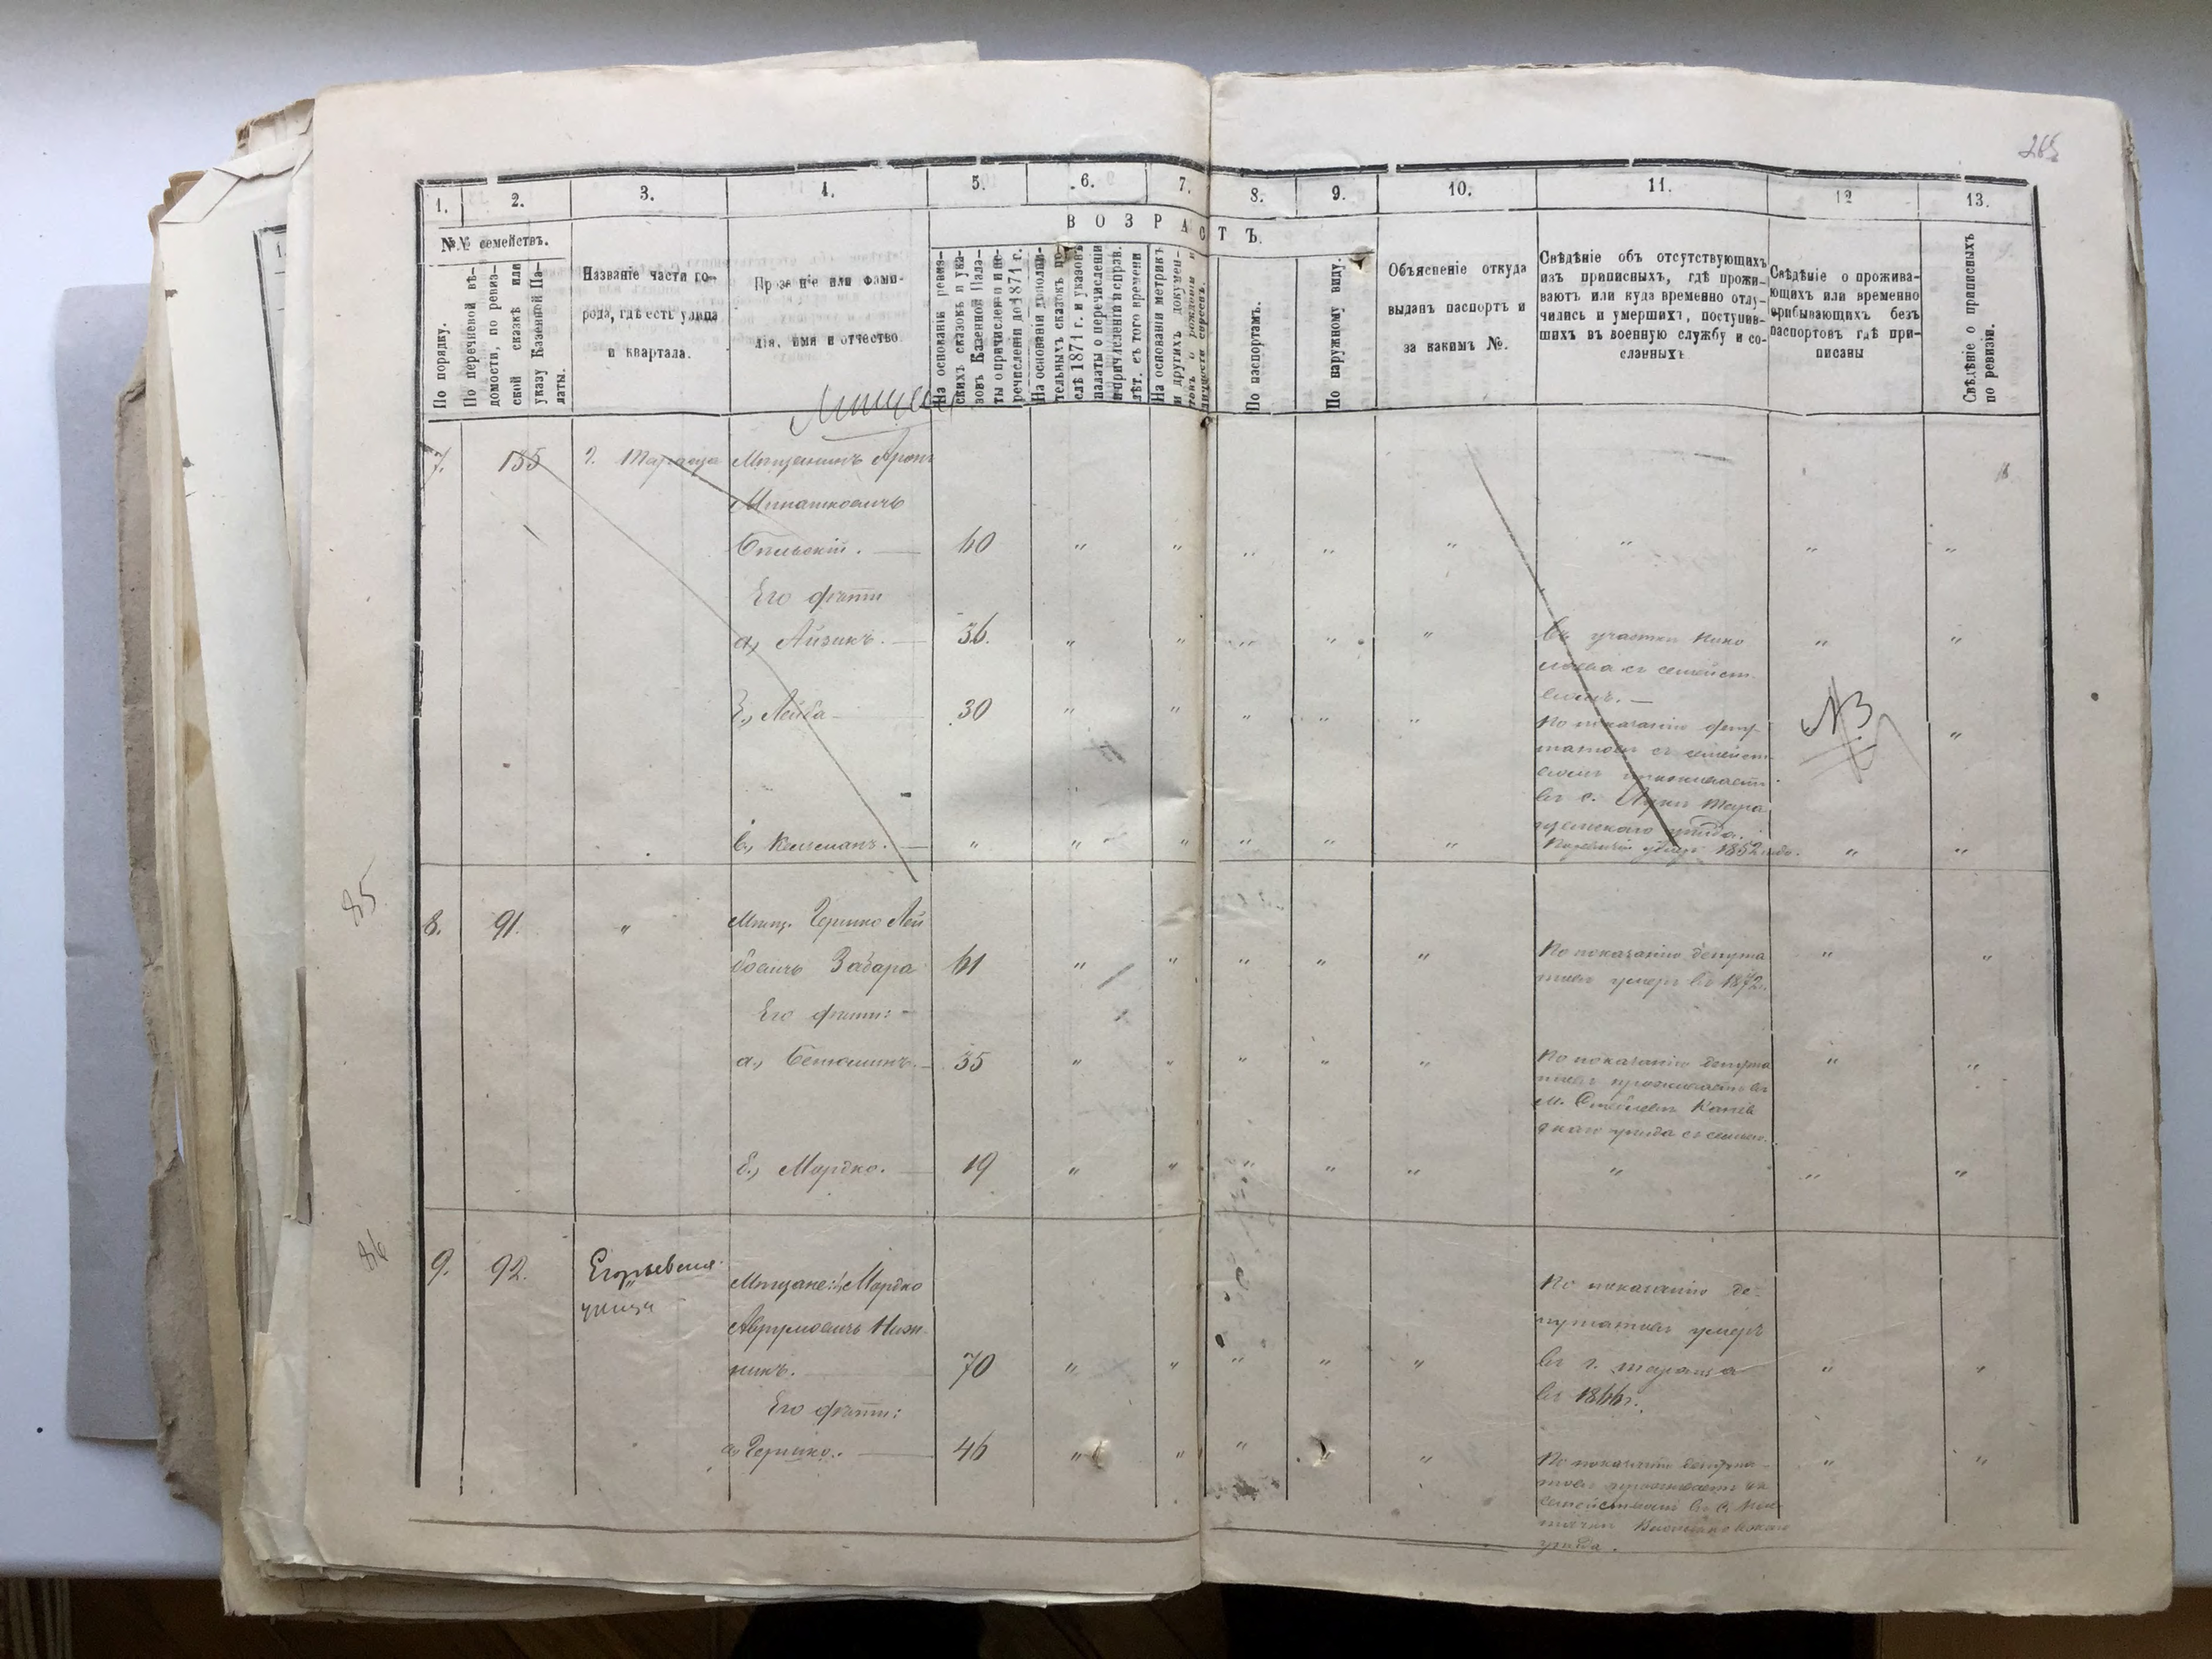 285
1. 2. 3. 4. 5. 6. 7. 8. 9. 10. 11. 12 13.
№№ семействъ.
В О З Р А С Т Ъ.
По порядку.
По перечневой вѣ-
домости, по ревиз-
ской сказкѣ или
указу Казенной Па-
латы.
Названіе части го-
рода, гдѣ есть улица
и квартала.
Прозваніе или фами-
лія, имя и отчество.
На основаніи ревиз-
скихъ сказокъ и ука-
зовъ Казенной Пала-
ты о причисленіи и пе-
речисленіи до 1871 г.
На основаніи дополни-
тельныхъ сказокъ по-
слѣ 1871 г. и указовъ
палаты о перечисленіи
и причисленіи и справ.
лѣт. съ того времени
На основаніи метрикъ
и другихъ докумен-
товъ о рожденіи и
личности евреевъ.
По паспортамъ.
По наружному виду.
Объясненіе откуда
выданъ паспортъ и
за какимъ №.
Свѣдѣніе объ отсутствующихъ
изъ приписныхъ, гдѣ прожи-
ваютъ или куда временно отлу-
чились и умершихъ, поступив-
шихъ въ военную службу и со-
сланныхъ
Свѣдѣніе о прожива-
ющихъ или временно
прибывающихъ безъ
паспортовъ гдѣ при-
писаны
Свѣдѣніе о приписныхъ
по ревизіи.
7. 155 г. Тараща Мѣщанинъ Аронъ
Бѣльскій. 60 " " " " " " " "
Его дѣти
а, Айзикъ. 36. " " " " " Въ участкѣ Нико " "
лаева съ семейст
вомъ.
б, Лейба 30 " " " " " По показанію депу- №3 "
татовъ съ семейст-
вомъ проживаетъ
въ с. Лукѣ Тара
щанскаго уѣзда.
в, Кельманъ. " " " " " " умеръ 1852 года. " "
85
8. 91. " Мѣщ. Гершко Лей
бовичъ Забара 61 " " " " " По показанію депута " "
товъ умеръ въ 1872г.
Его дѣти:
а, Беньюминъ. 35 " " " " " По показанію депута " "
товъ проживаетъ въ
м. Стеблевѣ Канев
скаго уѣзда съ семьею.
б, Мордко. 19 " " " " " " " "
86
9. 92. Егорьевская
улица
Мѣщане: Мордко
Аврумовичъ Нож
никъ. 70 " " " " "
По показанію де-
путатовъ умеръ
въ г. Тараща " "
въ 1866г.
Его дѣти:
а, Гершко. 46 " " " " " По показанію депута- " "
товъ проживаетъ съ
семействомъ въ с.
уѣзда.